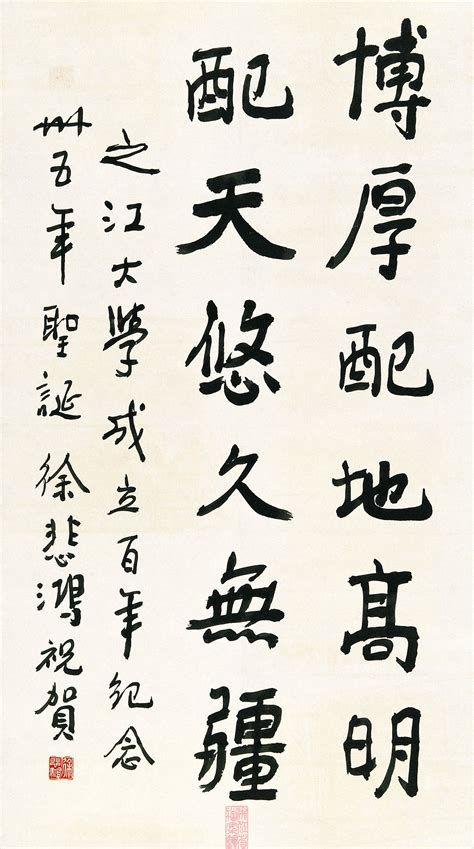 博厚配地高明
配天悠久無疆
之江大學成立百年紀念
卅五年聖誕 徐悲鴻祝賀